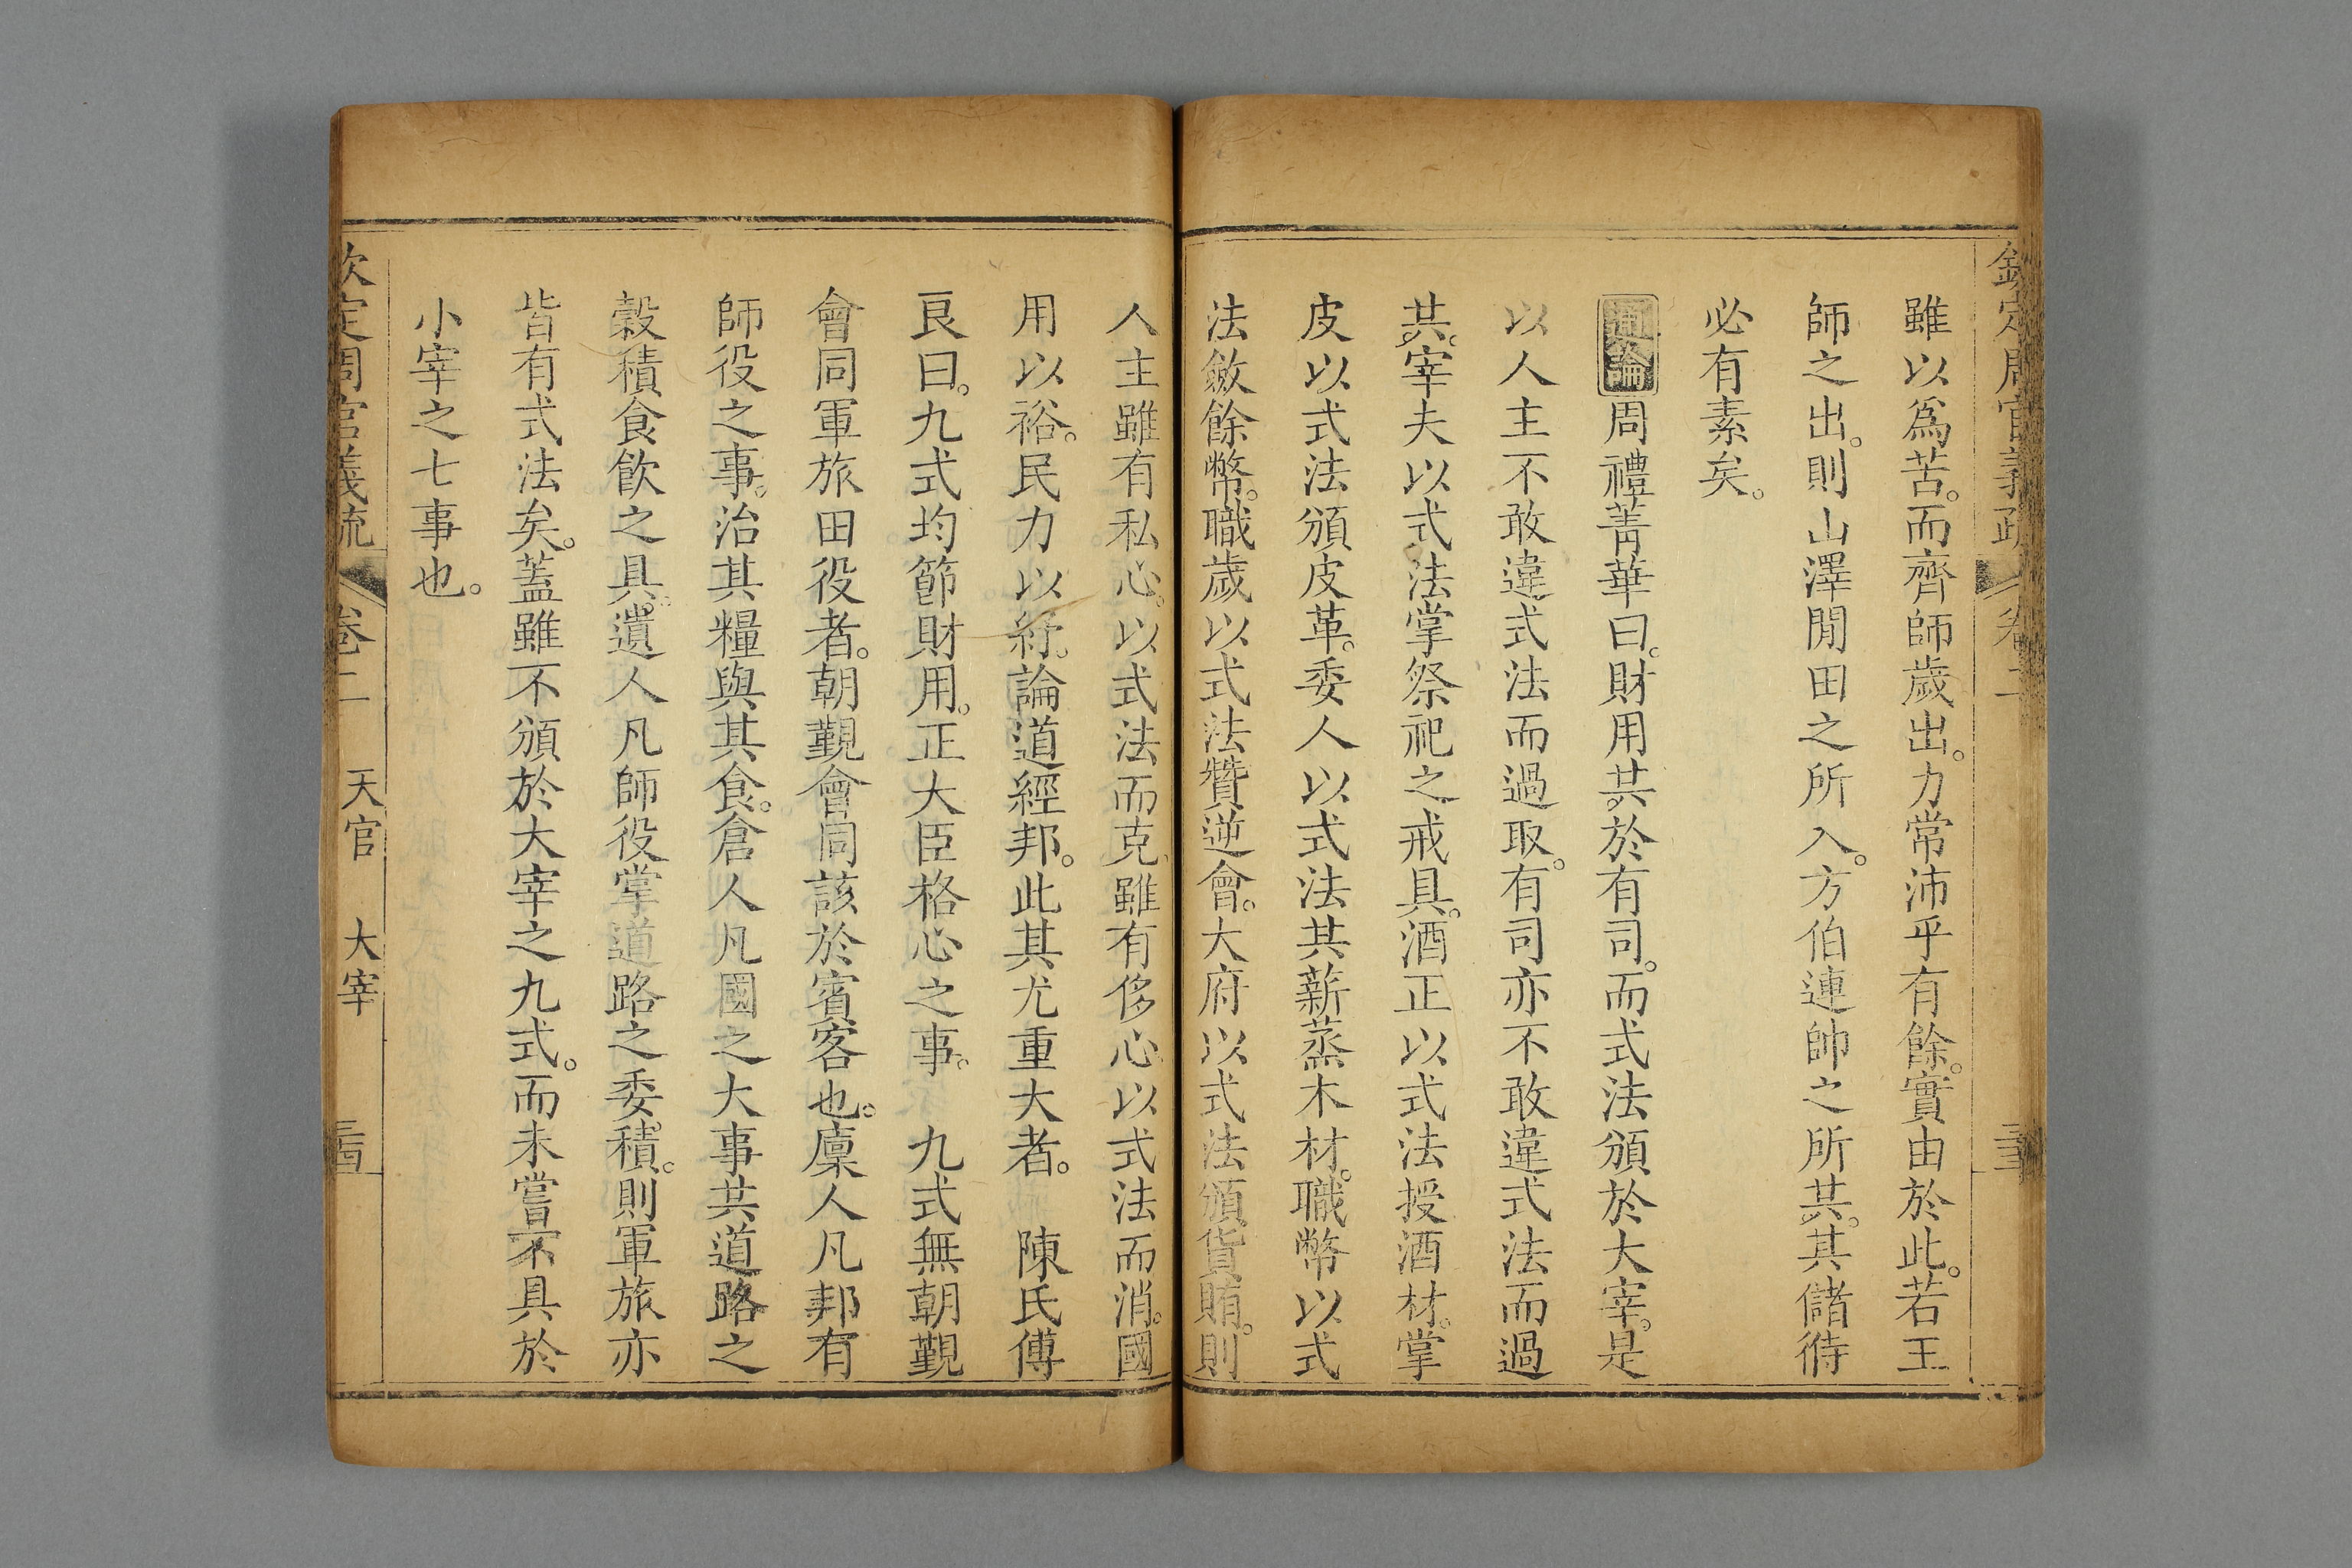 欽定周官義疏 卷二
雖以爲苦。而齊師歲出。力常沛乎有餘。實由於此。若王
師之出。則山澤閒田之所入。方伯連帥之所共。其儲偫
必有素矣。
通論周禮菁華曰。財用共於有司。而式法頒於大宰。是
以人主不敢違式法而過取。有司亦不敢違式法而過
共。宰夫以式法掌祭祀之戒具。酒正以式法授酒材。掌
皮以式法頒皮革。委人以式法共薪蒸木材。職幣以式
法斂餘幣。職歲以式法贊逆會。大府以式法頒貨賄。則
人主雖有私心。以式法而克。雖有侈心。以式法而消。國
用以裕。民力以紓。論道經邦。此其尤重大者。 陳氏傅
良曰。九式均節財用。正大臣格心之事。 九式無朝覲
會同軍旅田役者。朝覲會同該於賓客也。廩人凡邦有
師役之事。治其糧與其食。倉人凡國之大事共道路之
穀積食飲之具。遺人凡師役掌道路之委積。則軍旅亦
皆有式法矣。蓋雖不頒於大宰之九式。而未嘗不具於
小宰之七事也。
欽定周官義疏 卷二 天官 大宰